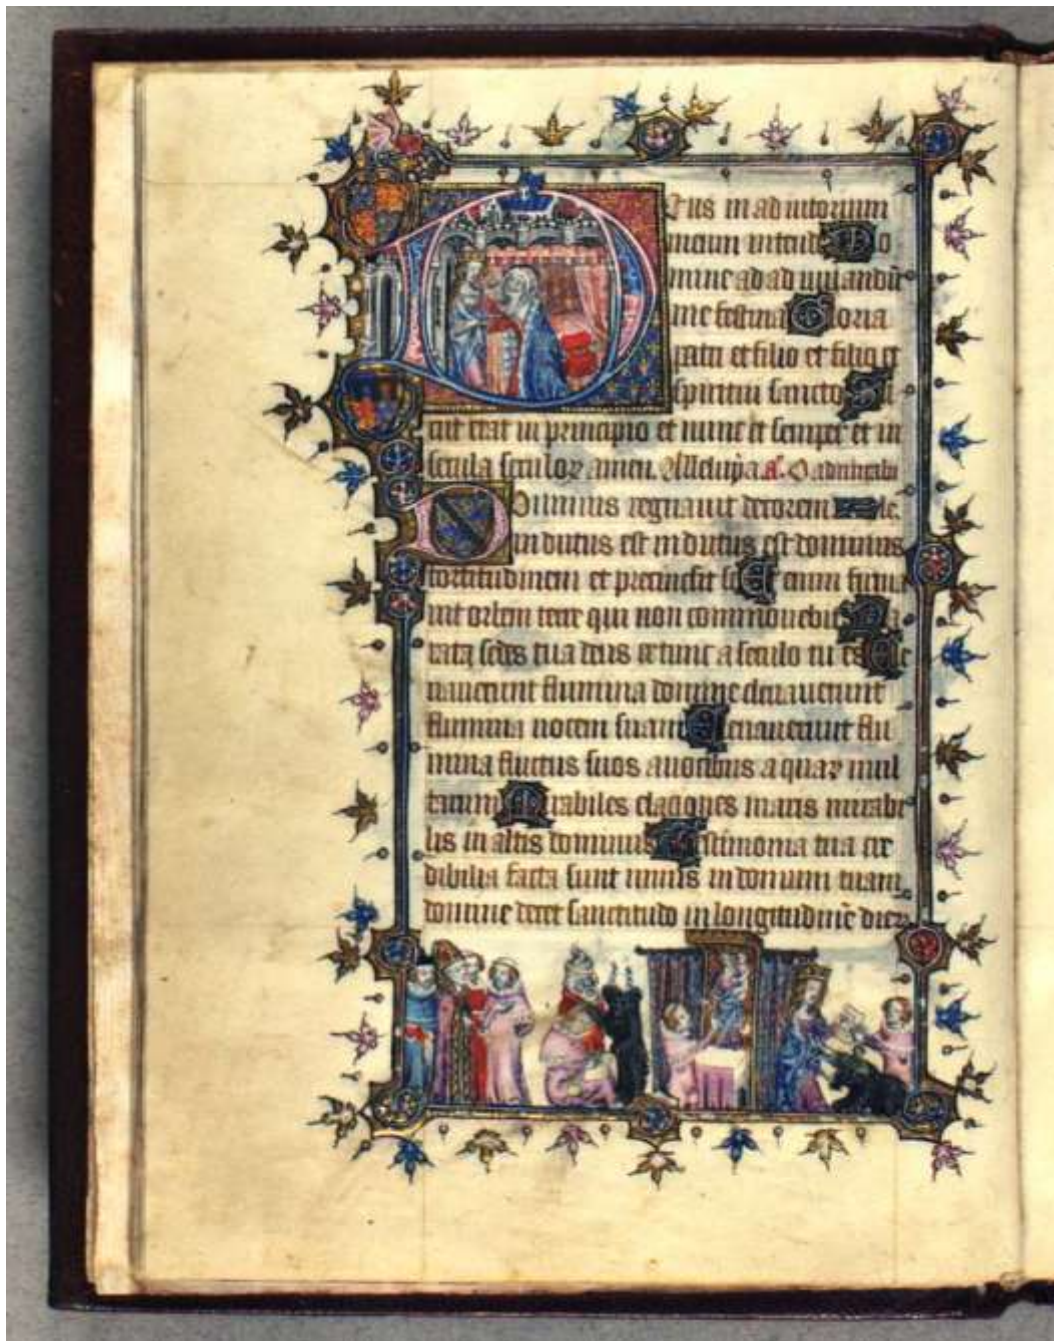 Deus in adiutorium
meum intende Do
mine ad adiuuandū
me festina Gloria
patri et filio et filio et
spiritui sancto Si
cut erat in principio et nunc et semper et in
secula seculoꝝ amen. Alleluya a. O admirabile
Dominus regnauit decorem
indutus est indutus est dominus
fortitudinem et precinxit se Et enim firma
uit orbem terre qui non commouebit Pa
rata sedes tua deus ex tunc a seculo tu es Ele
uauerunt flumina domine eleuauerunt
flumina uocem suam Eleuauerunt flu
mina fluctus suos a uocibus aquaꝝ mul
tarum Mirabiles elaciones maris mirabi
lis in altis dominus Testimonia tua cre
dibilia facta sunt nimis in domum tuam
domine decet sanctitudo in longitudinē dieꝝ